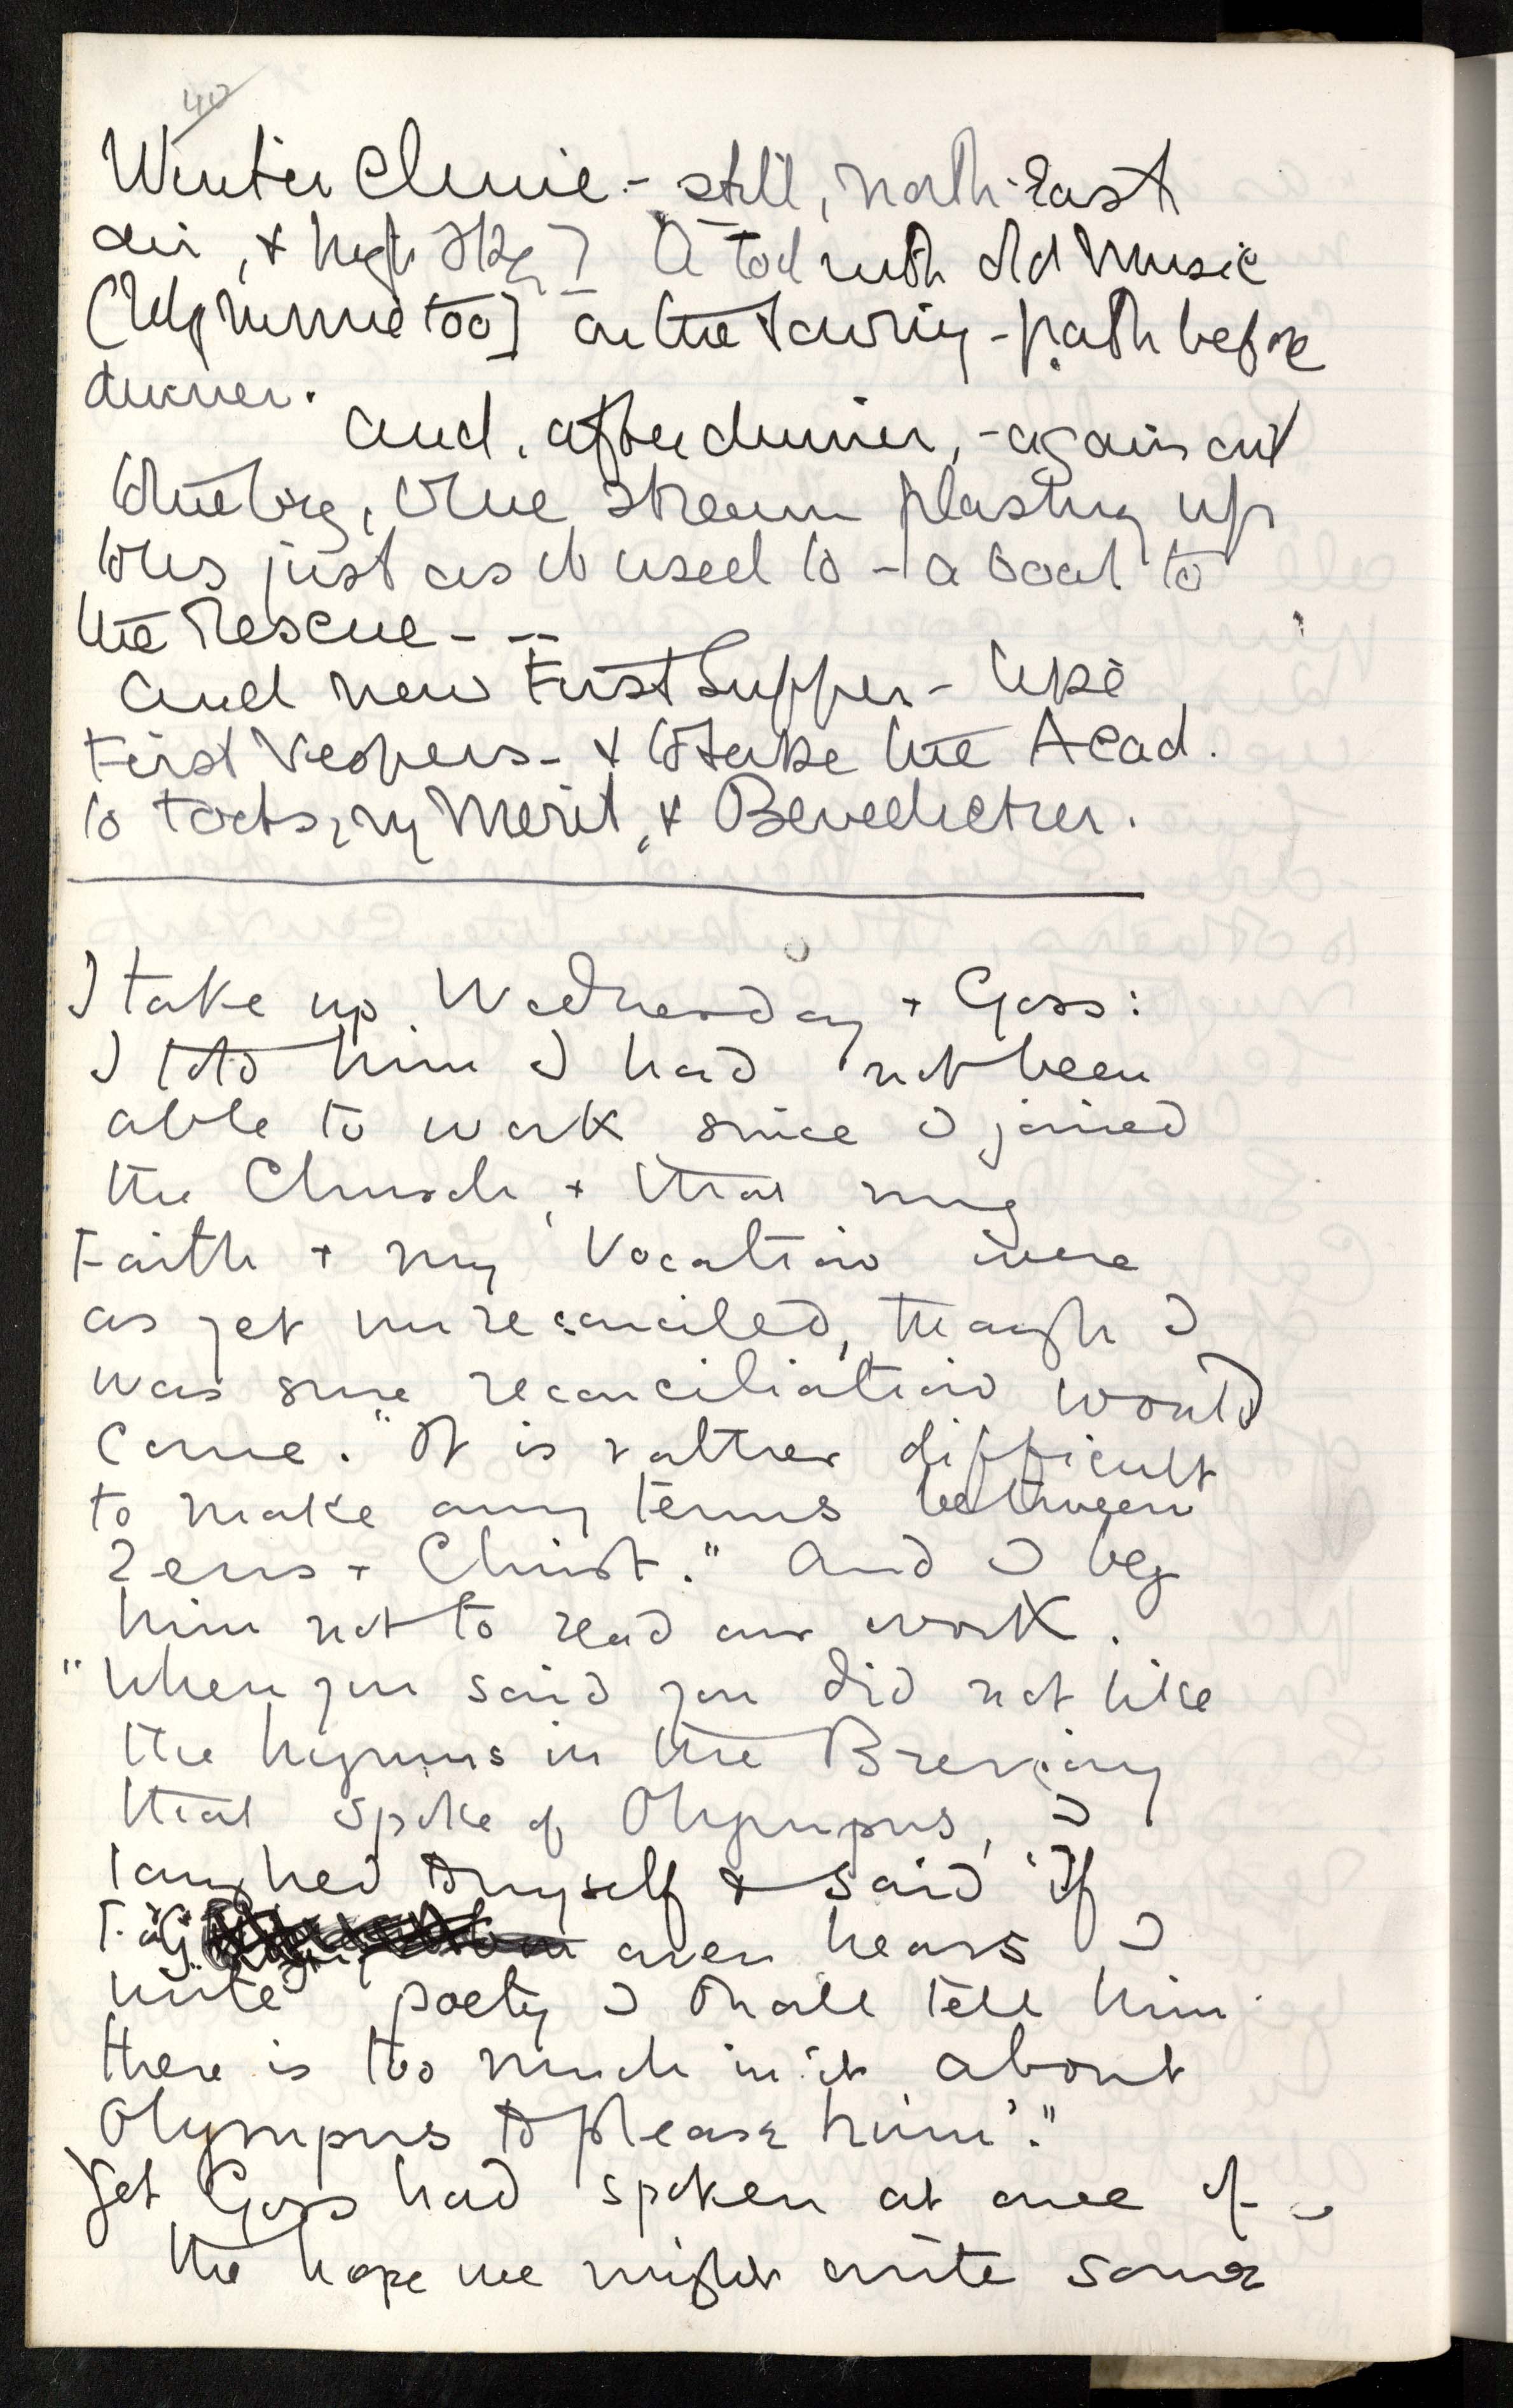 40
Winter Clime - still, north-East
air, & high sky] A tod with old Music
[Ugly Minnie too] on the towing-path before
dinner.
And, after dinner, - again out
blue, stream plashing up
to us just as it used to - a boat to
the Rescue - -
And now First Supper - like
First Vespers - & to take the Acad.
to Merit, & Benediction.
I take up Wednesday & Goss:
I told him I had not been
able to work since I joined
the Church, & that my
Faith & my Vocation were
as yet unreconciled, though I
was sure reconciliation would
come. "It is rather difficult
to make any terms between
Zeus & Christ." And I beg
him not to read our work.
"When you said you did not like
the hymns in the Breviary
that spoke of Olympus, I
laughed to myself & said 'If
ever hears I
write poetry I shall tell him
there is too much in it about
Olympus to please him'."
Yet Goss had spoken at once of
the hope we might write some